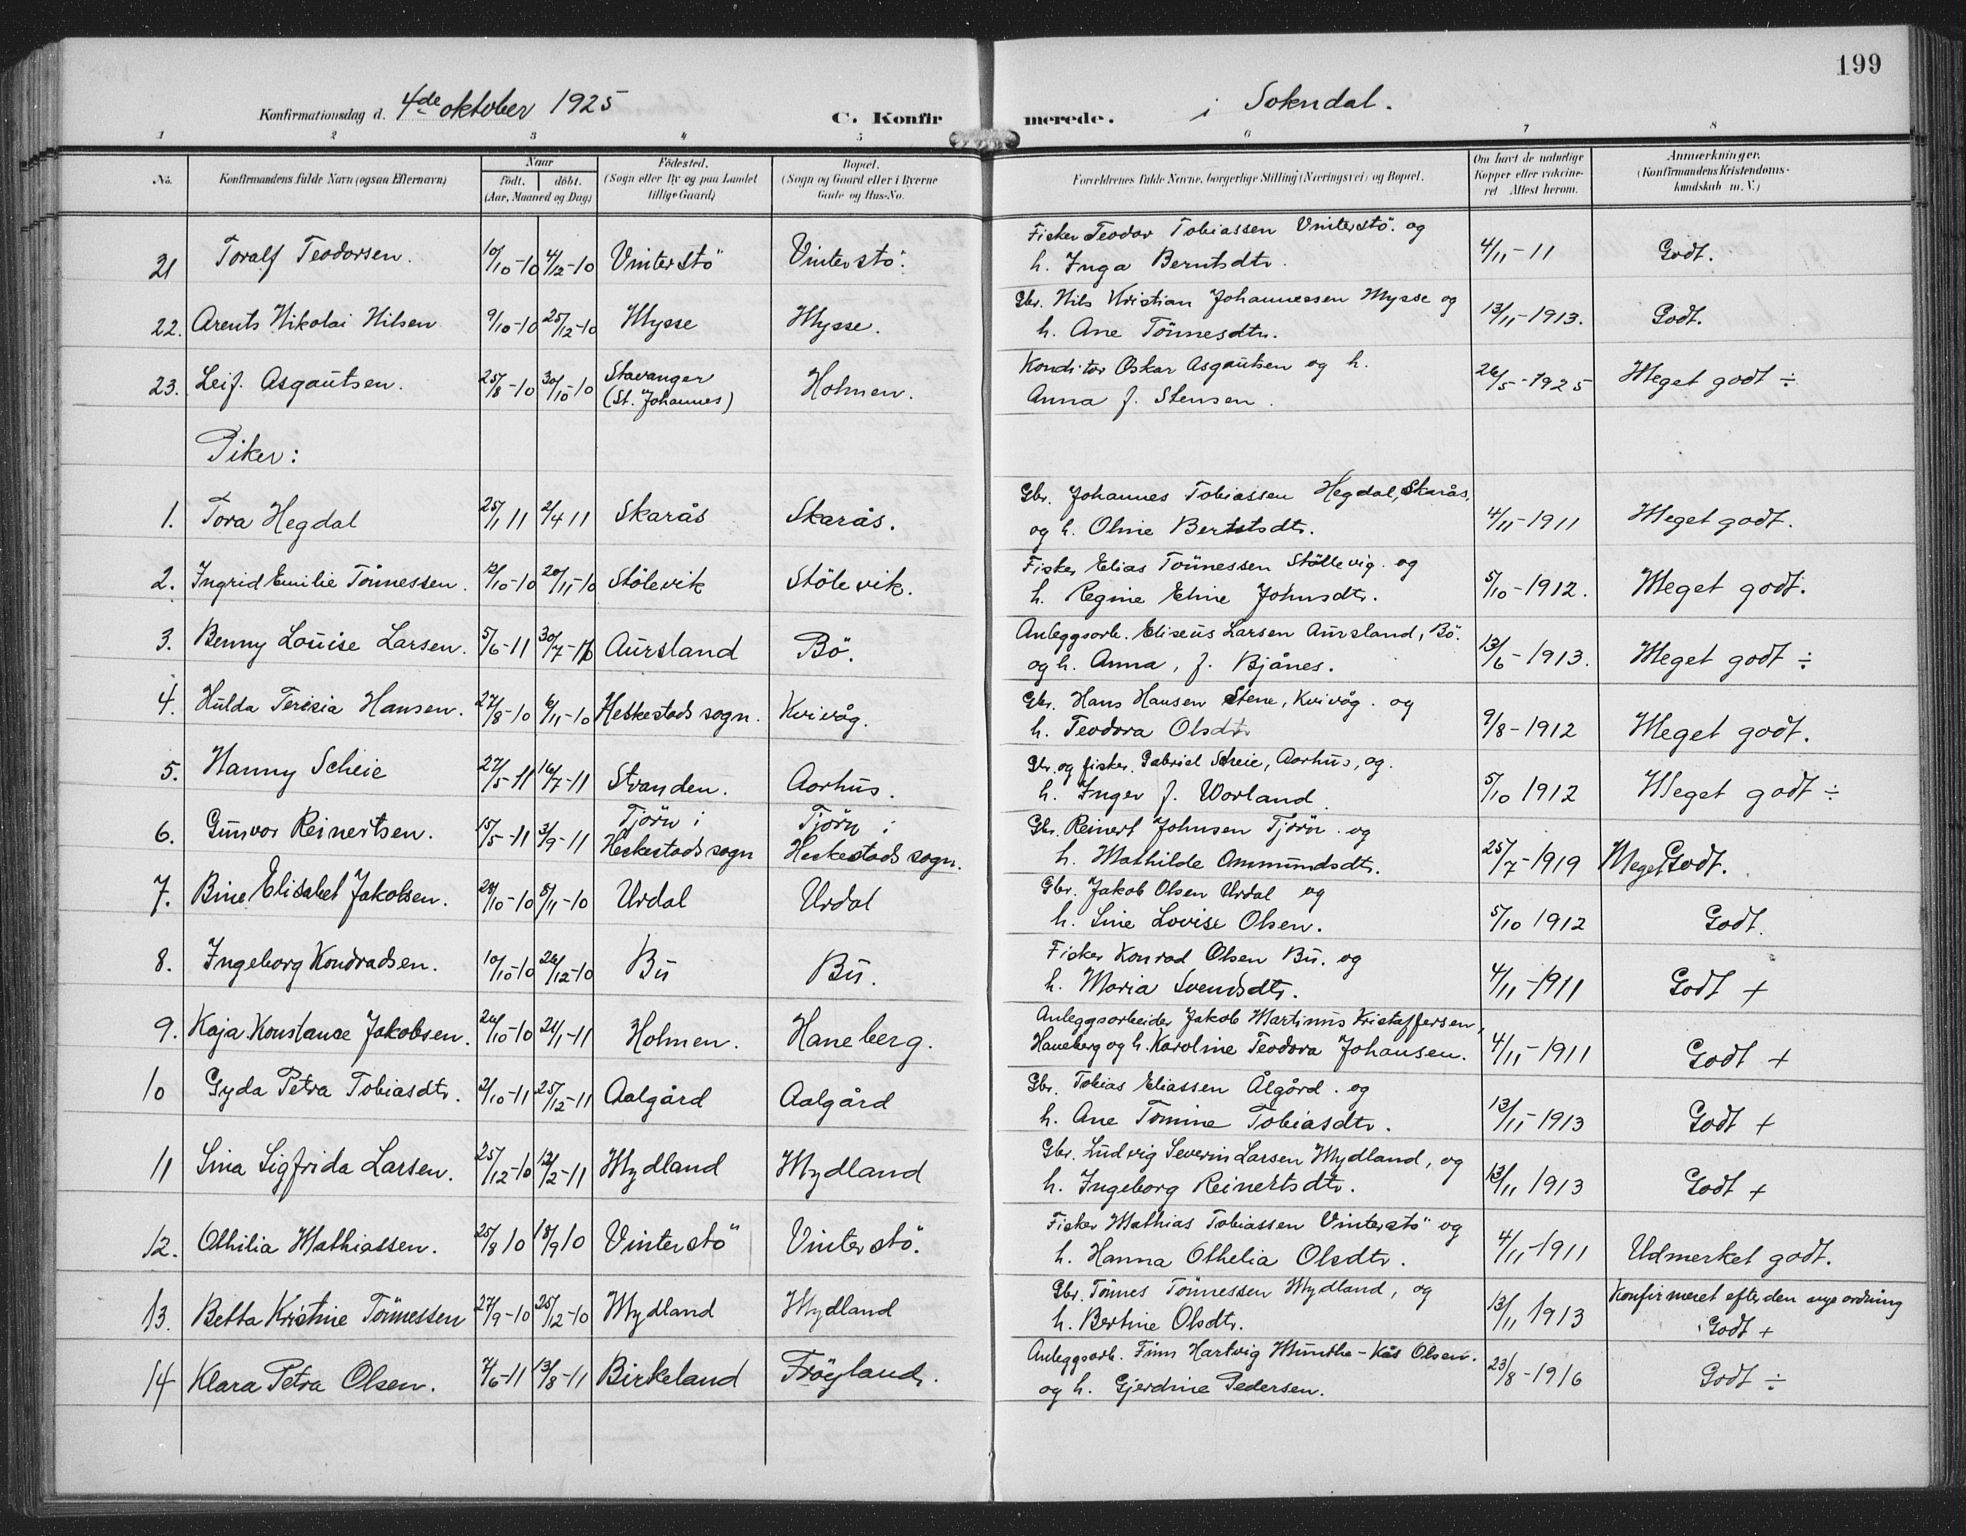 199
Konfirmationsdag d. 4de oktober 1925 C. Konfirmerede. i Sokndal.
1 2 3 4 5 6 7 8
No. Konfirmandens fulde Navn (ogsaa Efternavn) Naar født. døbt. (Aar, Maaned og Dag) Fødested. (Sogn eller By og paa Landet tillige Gaard) Bopæl. (Sogn og Gaard eller i Byerne Gade og Hus-No. Forældrenes fulde Navne, borgerlige Stilling (Næringsvei) og Bopæl. Om havt de naturlige Kopper eller vakcineret Attest herom. Anmærkninger. (Konfirmandens Kristendomskundskab m. V.)
21 Toralf Teodorsen. 10/10-10 4/12-10 Vinterstö Vinterstö. Fisker Teodor Tobiassen Vinterstö. og 4/11-11 Godt.
h. Inga Berntsdtr.
22. Arents Nikolai Nilsen 9/10-10 25/12-10 Mysse Mysse. Gbr. Nils Kristian Johannessen Mysse og 13/11-1913. Godt.
h. Ane Tönnesdtr.
23. Leif Asgautsen. 25/8-10 30/10-10 Stavanger (St. Johannes) Holmen. Konditor Oskar Asgautsen og h. 26/5-1925 Meget godt ÷
Anna f. Stensen.
Piker:
1. Tora Hegdal 25/1 11 2/4 11 Skarås Skarås. Gbr. Johannes Tobiassen Hegdal, Skarås, 4/11-1911 Meget godt.
og h. Oline Berntsdtr.
2. Ingrid Emilie Tönnessen. 12/10-10 20/11-10 Stölevik Stölevik. Fisker Elias Tönnessen Stöllevig. og 5/10-1912. Meget godt.
h. Regine Eline Johnsdtr.
3. Benny Louise Larsen. 5/6-11 30/7-11 Aursland Bö. Anleggsarb. Eliseus Larsen Aursland, Bö. 13/6-1913. Meget godt ÷
og h. Anna, f. Bjånes.
4. Hulda Teresia Hansen. 27/8-10 6/11-10 Heskestad sogn. Kvivåg. Gbr. Hans Hansen Stene, Kvivåg. og 9/8-1912 Meget godt.
h. Teodora Olsdtr
5. Nanny Scheie 27/5-11 16/7-11 Stranden. Aarhus. Gbr. og fisker. Gabriel Scheie, Aarhus, og. 5/10 1912 Meget godt ÷
h. Inger f. Worland.
6. Gunvor Reinertsen. 15/5-11 3/9-11 Tjörn i Heskestad sogn Tjörn i Heskestad sogn. Gbr. Reinert Johnsen Tjörn. og 25/7-1919 Meget Godt.
h. Mathilde Ammundsdtr.
7. Bine Elisabet Jakobsen. 20/10-10 5/11-10 Urdal Urdal Gbr. Jakob Olsen Urdal og 5/10 1912 Godt.
h. Sine Lovise Olsen.
8. Ingeborg Kondradsen. 10/10-10 26/12-10 Bu Bu. Fisker Konrad Olsen Bu. og 4/11-1911 Godt +
h. Maria Svendsdtr.
9. Kaja Konstanse Jakobsen. 26/10-10 21/1-11 Holmen. Haneberg. Anleggsarbeider Jakob Martinus Kristaffersen, 4/11-1911 Godt +
Haneberg og h. Karoline Teodora Johansen.
10 Gyda Petra Tobiasdtr. 2/10-11 25/12-11 Aalgård Aalgård Gbr. Tobias Eliassen Ålgård. og 13/11-1913 Godt +
h. Ane Tomine Tobiasdtr.
11 Sina Sigfrida Larsen. 25/12-10 12/2-11 Mydland Mydland Gbr. Ludvig Severin Larsen Mydland, og 13/11 1913 Godt +
h. Ingeborg Reinertsdtr.
12. Othilia Mathiassen. 25/8 10 18/9 10 Vinterstö Vinterstö. Fisker Mathias Tobiassen Vinterstö og 4/11-1911 Udmerket godt.
h. Hanna Othelia Olsdtr.
13. Betta Kristine Tönnessen 27/9-10 25/12-10 Mydland Mydland Gbr. Tönnes Tönnessen Mydland, og 13/11 1913 Konfirmeret efter den nye ordning
h. Bertine Olsdtr. Godt +
14 Klara Petra Olsen. 7/6-11 13/8-11 Birkeland Fröyland. Anleggsarb. Finn Hartvig Munthe-Kås Olsen. 23/8-1916 Godt ÷
og h. Gjerdine Pedersen.